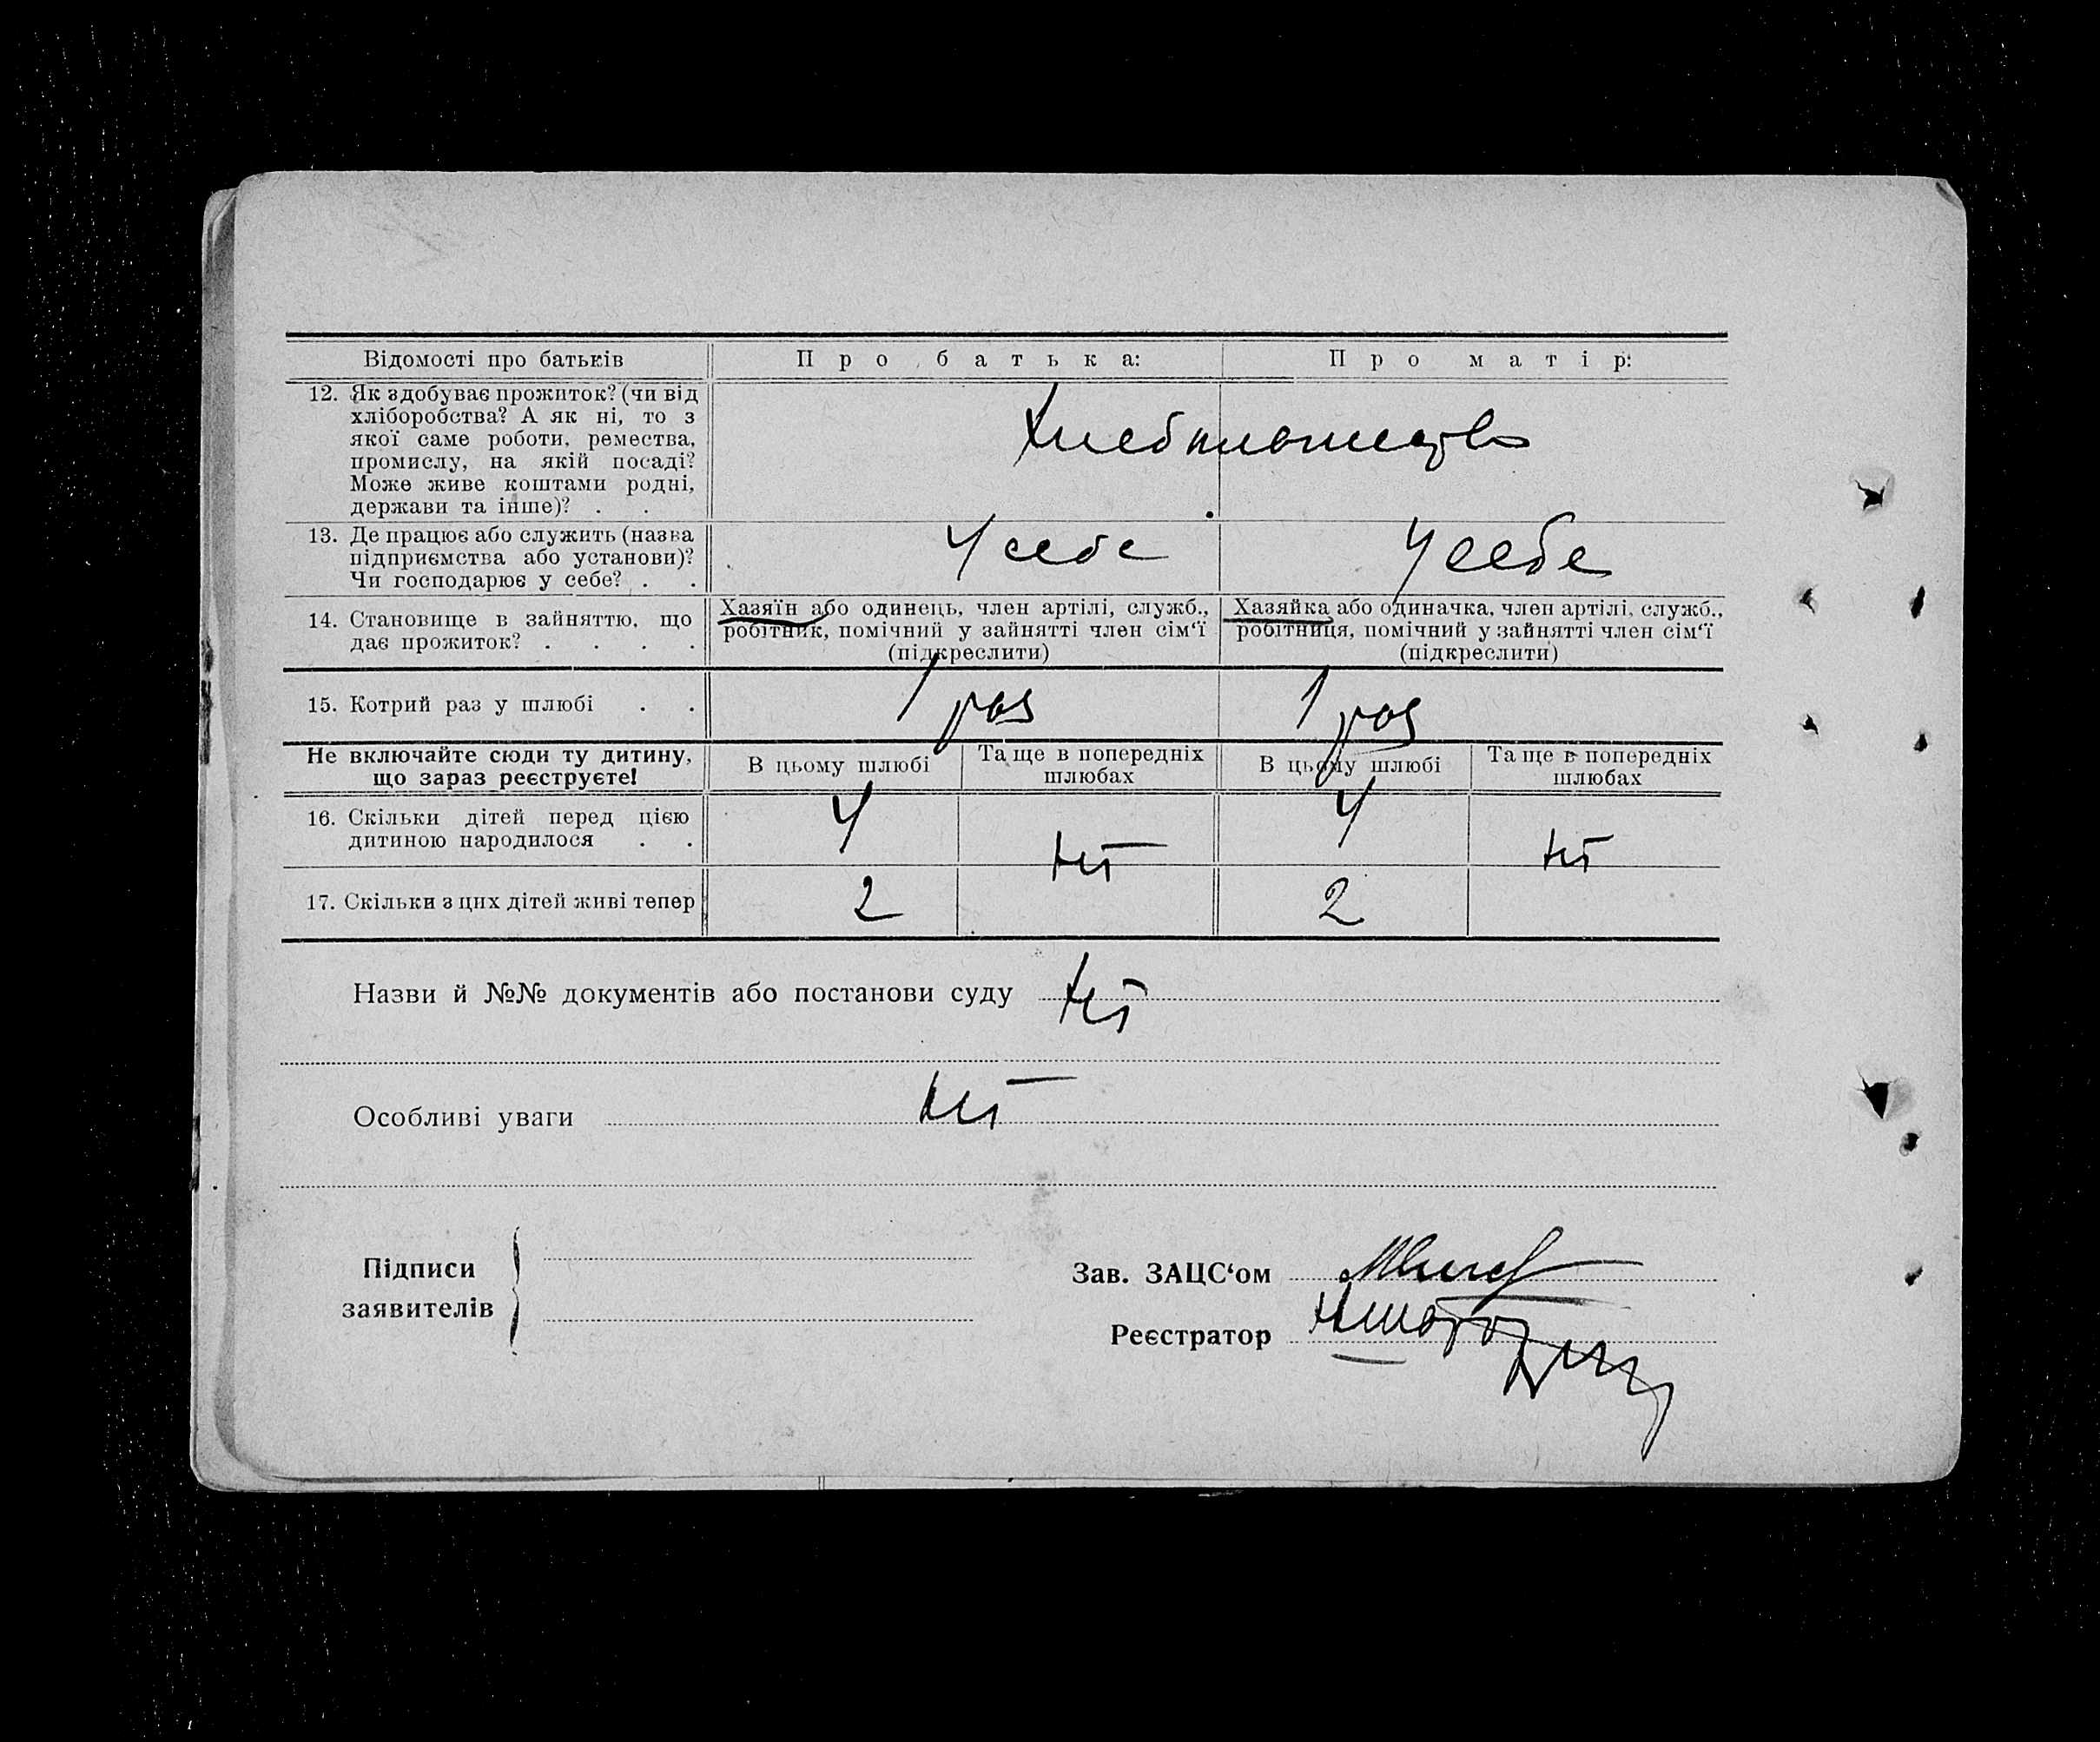 Відомості про батьків
Про батька:
Про матір:
12. Як здобуває прожиток? (чи від
хліборобства? А як ні, то з
якої саме роботи, ремества,
промислу, на якій посаді?
Може живе коштами родні,
держави та інше)? . .
13. Де працює або служить (назва
підприємства або установи)?
Чи господарює у себе? . .
У себе
У себе
14. Становище в зайняттю, що
дає прожиток? . . . .
Хазяїн або одинець, член артілі, служб.,
робітник, помічний у зайнятті член сім‘ї
(підкреслити)
Хазяйка або одиначка, член артілі, служб.,
робітниця, помічний у зайнятті член сім‘ї
(підкреслити)
15. Котрий раз у шлюбі . .
1 раз
1 раз
Не включайте сюди ту дитину,
що зараз реєструєте!
В цьому шлюбі
Та ще в попередніх
шлюбах
В цьому шлюбі
Та ще в попередніх
шлюбах
16. Скільки дітей перед цією
дитиною народилося . .
4
ні
4
ні
17. Скільки з цих дітей живі тепер
2
2
Назви й №№ документів або постанови суду ні
Особливі уваги ні
Підписи
заявителів
Зав. ЗАЦС‘ом
Реєстратор